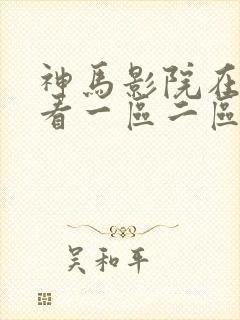 神馬影院在
看一區二區
吴和平